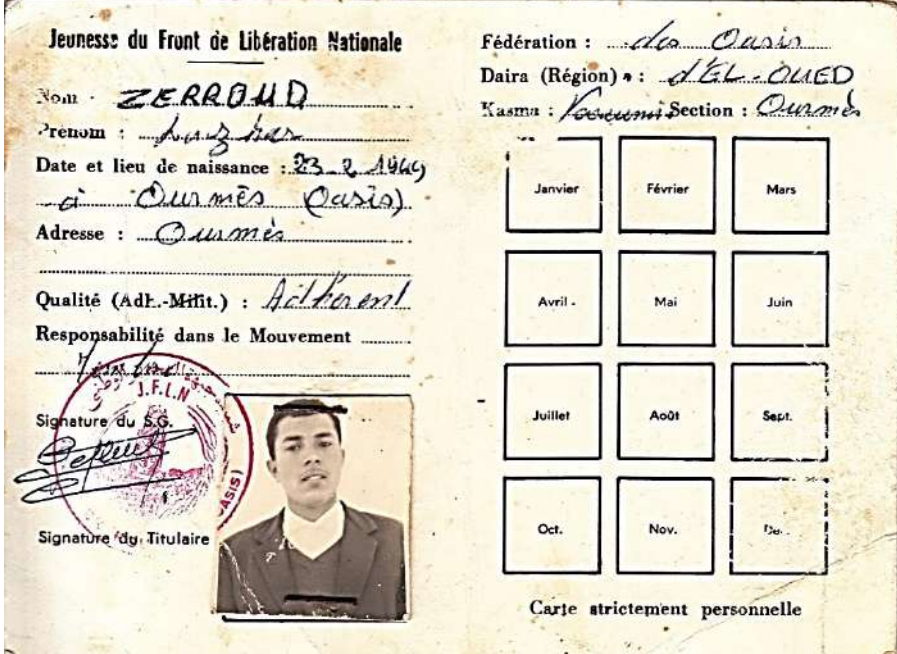 Jeunesse du Front de Libération Nationale
Nom : ZERROUD
Prénom : Lazhar
Date et lieu de naissance : 23_2_1949
à Ourmès (Oasis)
Adresse : Ourmès
Qualité (Adh.-Milit.) : Adhérent
Responsabilité dans le Mouvement
J.F.L.N
Signature du S.G.
OASIS)
Signature du Titulaire
Fédération : des Oasis
Daira (Région) : d'EL-OUED
Kasma : Section : Ourmès
Janvier Février Mars
Avril Mai Juin
Juillet Août Sept.
Oct. Nov.
Carte strictement personnelle